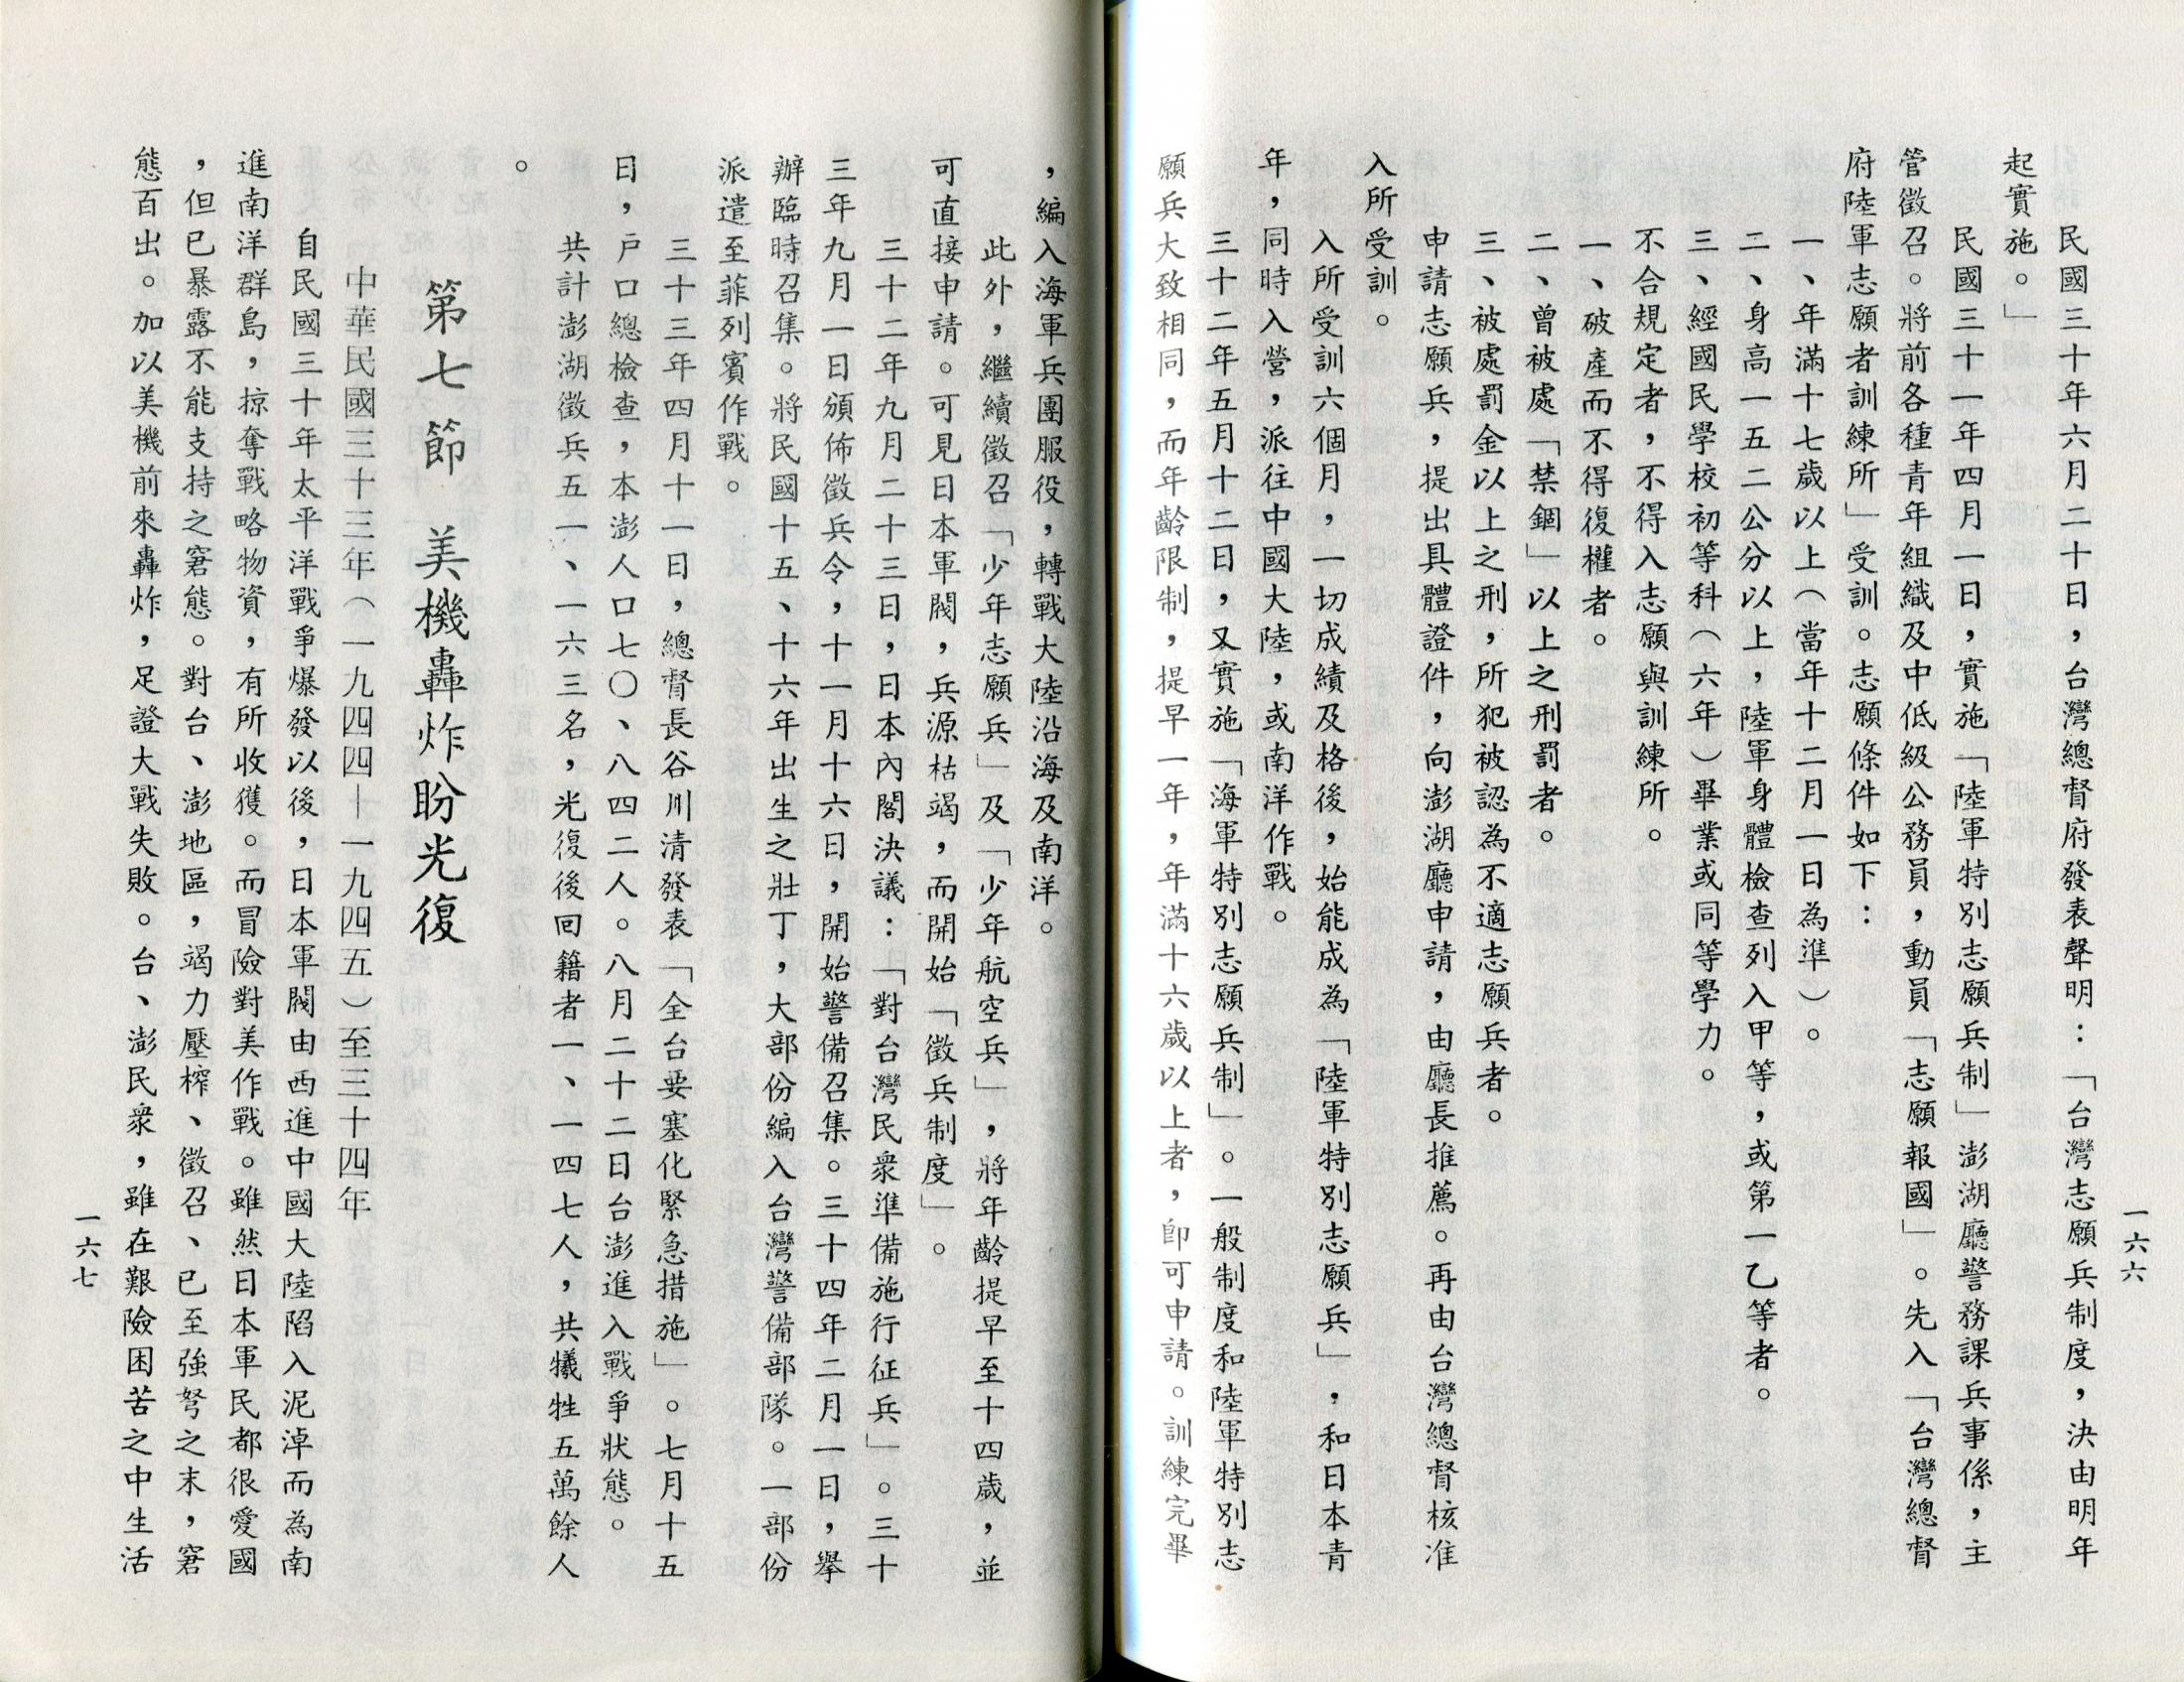 一六六
民國三十年六月二十日，台灣總督府發表聲明：「台灣志願兵制度，決由明年
起實施。」
民國三十一年四月一日，實施「陸軍特別志願兵制」澎湖廳警務課兵事係，主
管徵召。將前各種青年組織及中低級公務員，動員「志願報國」。先入「台灣總督
府陸軍志願者訓練所」受訓。志願條件如下：
一、年滿十七歲以上（當年十二月一日為準）。
二、身高一五二公分以上，陸軍身體檢查列入甲等，或第一乙等者。
三、經國民學校初等科（六年）畢業或同等學力。
不合規定者，不得入志願與訓練所。
一、破產而不得復權者。
二、曾被處「禁錮」以上之刑罰者。
三、被處罰金以上之刑，所犯被認為不適志願兵者。
申請志願兵，提出具體證件，向澎湖廳申請，由廳長推薦。再由台灣總督核准
入所受訓。
入所受訓六個月，一切成績及格後，始能成為「陸軍特別志願兵」，和日本青
年，同時入營，派往中國大陸，或南洋作戰。
三十二年五月十二日，又實施「海軍特別志願兵制」。一般制度和陸軍特別志
願兵大致相同，而年齡限制，提早一年，年滿十六歲以上者，即可申請。訓練完畢
，編入海軍兵團服役，轉戰大陸沿海及南洋。
此外，繼續徵召「少年志願兵」及「少年航空兵」，將年齡提早至十四歲，並
可直接申請。可見日本軍閥，兵源枯竭，而開始「徵兵制度」。
三十二年九月二十三日，日本內閣決議：「對台灣民衆準備施行征兵」。三十
三年九月一日頒佈徵兵令，十一月十六日，開始警備召集。三十四年二月一日，舉
辦臨時召集。將民國十五、十六年出生之壯丁，大部份編入台灣警備部隊。一部份
派遣至菲列賓作戰。
三十三年四月十一日，總督長谷川清發表「全台要塞化緊急措施」。七月十五
日，戶口總檢查，本澎人口七〇、八四二人。八月二十二日台澎進入戰爭狀態。
共計澎湖徵兵五一、一六三名，光復後回籍者一、一四七人，共犧牲五萬餘人
。
第七節　美機轟炸盼光復
中華民國三十三年（一九四四—一九四五）至三十四年
自民國三十年太平洋戰爭爆發以後，日本軍閥由西進中國大陸陷入泥淖而為南
進南洋群島，掠奪戰略物資，有所收獲。而冒險對美作戰。雖然日本軍民都很愛國
，但已暴露不能支持之窘態。對台、澎地區，竭力壓榨、徵召、已至強弩之末，窘
態百出。加以美機前來轟炸，足證大戰失敗。台、澎民衆，雖在艱險困苦之中生活
一六七